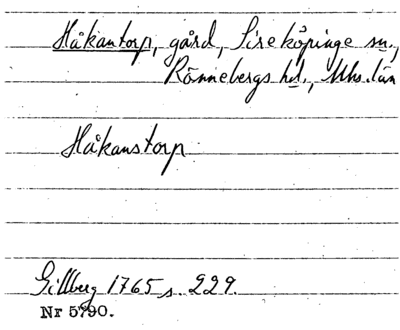 Håkantorp, gård, Sireköpinge sn.,
Rönnebergs hd., Mhs. län
Håkanstorp
Gillberg 1765 s. 229.
Nr 5790.